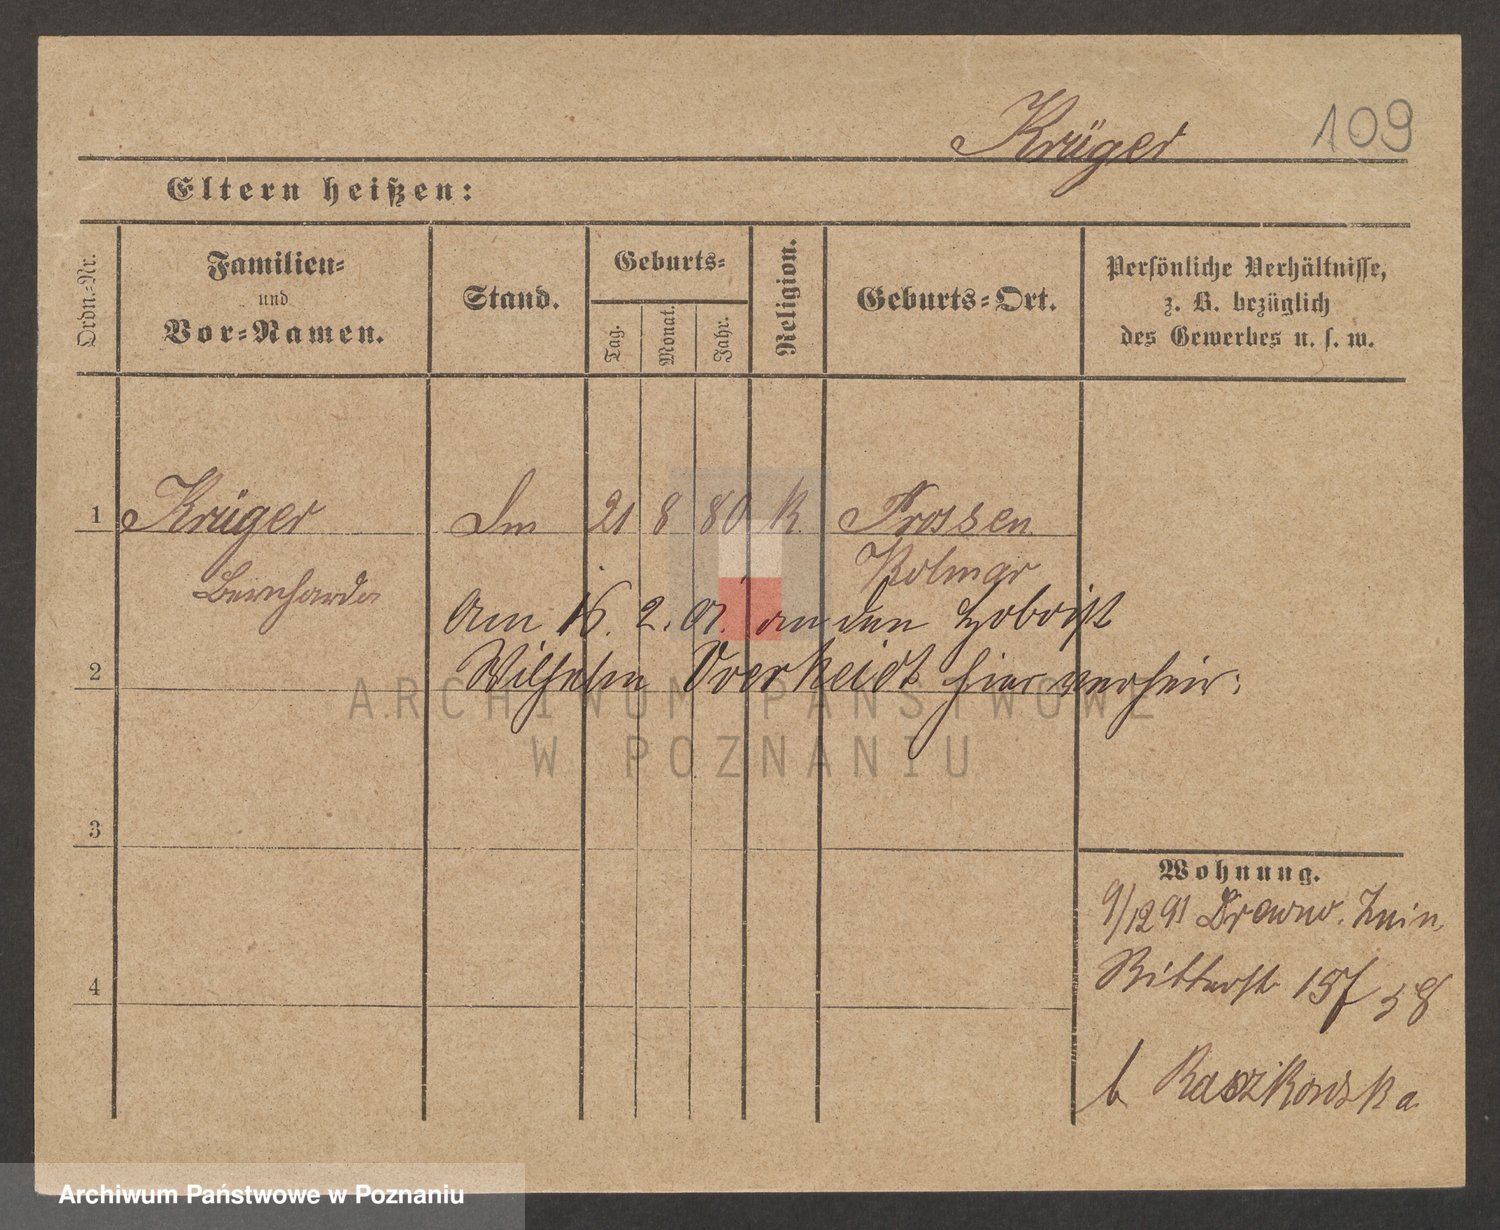 Krüger 109
Eltern heißen:
Ordn.-Nr.
Familien-
und
Vor-Namen.
Stand.
Geburts-
Tag.
Monat.
Jahr.
Religion.
Geburts-Ort.
Persönliche Verhältnisse,
z. B. bezüglich
des Gewerbes u. s. w.
1 Krüger 21 8 80 K. Prossen
Bernharda Kolmar
Am 16. 2. 01. an den Hoboist
2 Wilhelm Overheidt hier verheir:
3
4
Wohnung.
9/12 91
Ritterst 15
b Raszkowska
ARCHIWUM PAŃSTWOWE
W POZNANIU
Archiwum Państwowe w Poznaniu